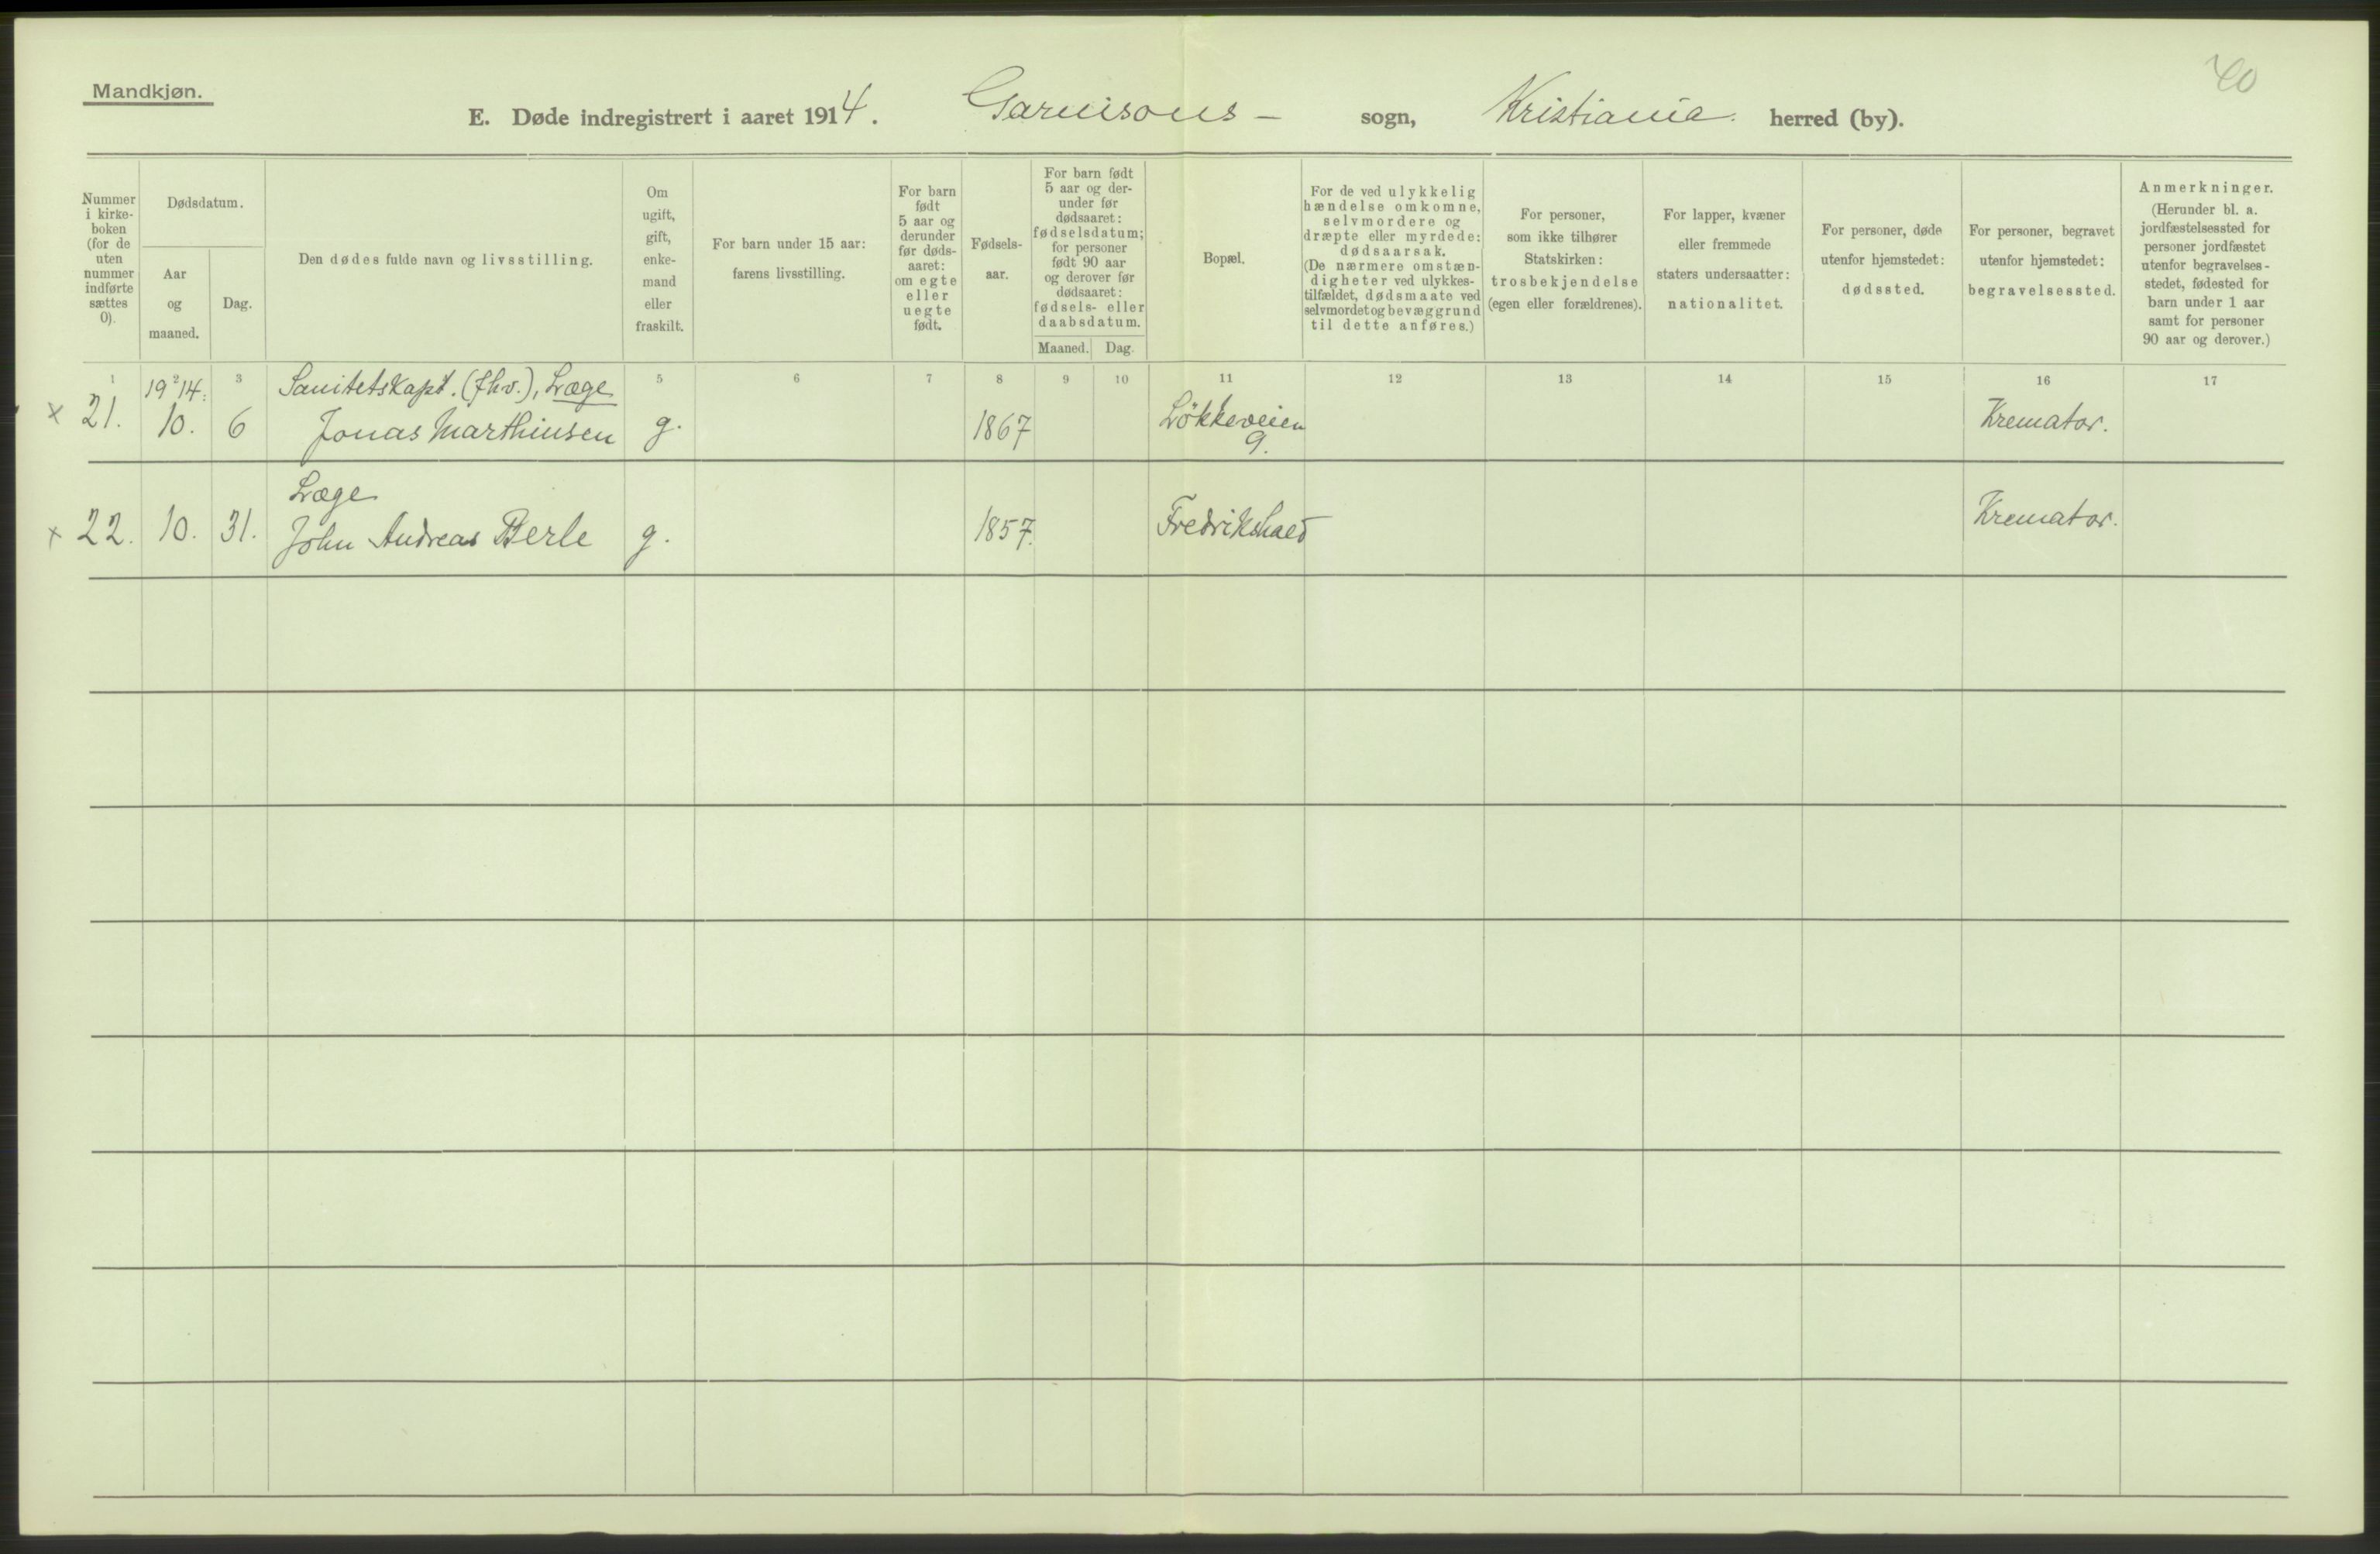 40
Mandkjøn.
E. Døde indregistrert i aaret 1914. Garnisons- sogn, Kristiania. herred (by).
Nummer
i kirke-
boken
(for de
uten
nummer
indførte
sættes
0).
Dødsdatum.
Aar
og
maaned.
Dag.
Den dødes fulde navn og livsstilling.
Om
ugift,
gift,
enke-
mand
eller
fraskilt.
For barn under 15 aar:
farens livsstilling.
For barn
født
5 aar og
derunder
før døds-
aaret:
om egte
eller
uegte
født.
Fødsels-
aar.
For barn født
5 aar og der-
under før
dødsaaret:
fødselsdatum;
for personer
født 90 aar
og derover før
dødsaaret:
fødsels- eller
daabsdatum.
Maaned. Dag.
Bopæl.
For de ved ulykkelig
hændelse omkomne,
selvmordere og
dræpte eller myrdede:
dødsaarsak.
(De nærmere omstæn-
digheter ved ulykkes-
tilfældet, dødsmaate ved
selvmordet og bevæggrund
til dette anføres.)
For personer,
som ikke tilhører
Statskirken:
trosbekjendelse
(egen eller forældrenes).
For lapper, kvæner
eller fremmede
staters undersaatter:
nationalitet.
For personer, døde
utenfor hjemstedet:
dødssted.
For personer, begravet
utenfor hjemstedet:
begravelsessted.
Anmerkninger.
(Herunder bl. a.
jordfæstelsessted for
personer jordfæstet
utenfor begravelses-
stedet, fødested for
barn under 1 aar
samt for personer
90 aar og derover.)
1 2 3 5 6 7 8 9 10 11 12 13 14 15 16 17
1914: Sanitetskapt. (fhv.), Læge
x 21. 10. 6 Jonas Marthinsen g. 1867 Løkkeveien Kremator.
9.
Læge
x 22. 10. 31. John Andreas Berle g. 1857. Fredrikshald Kremator.